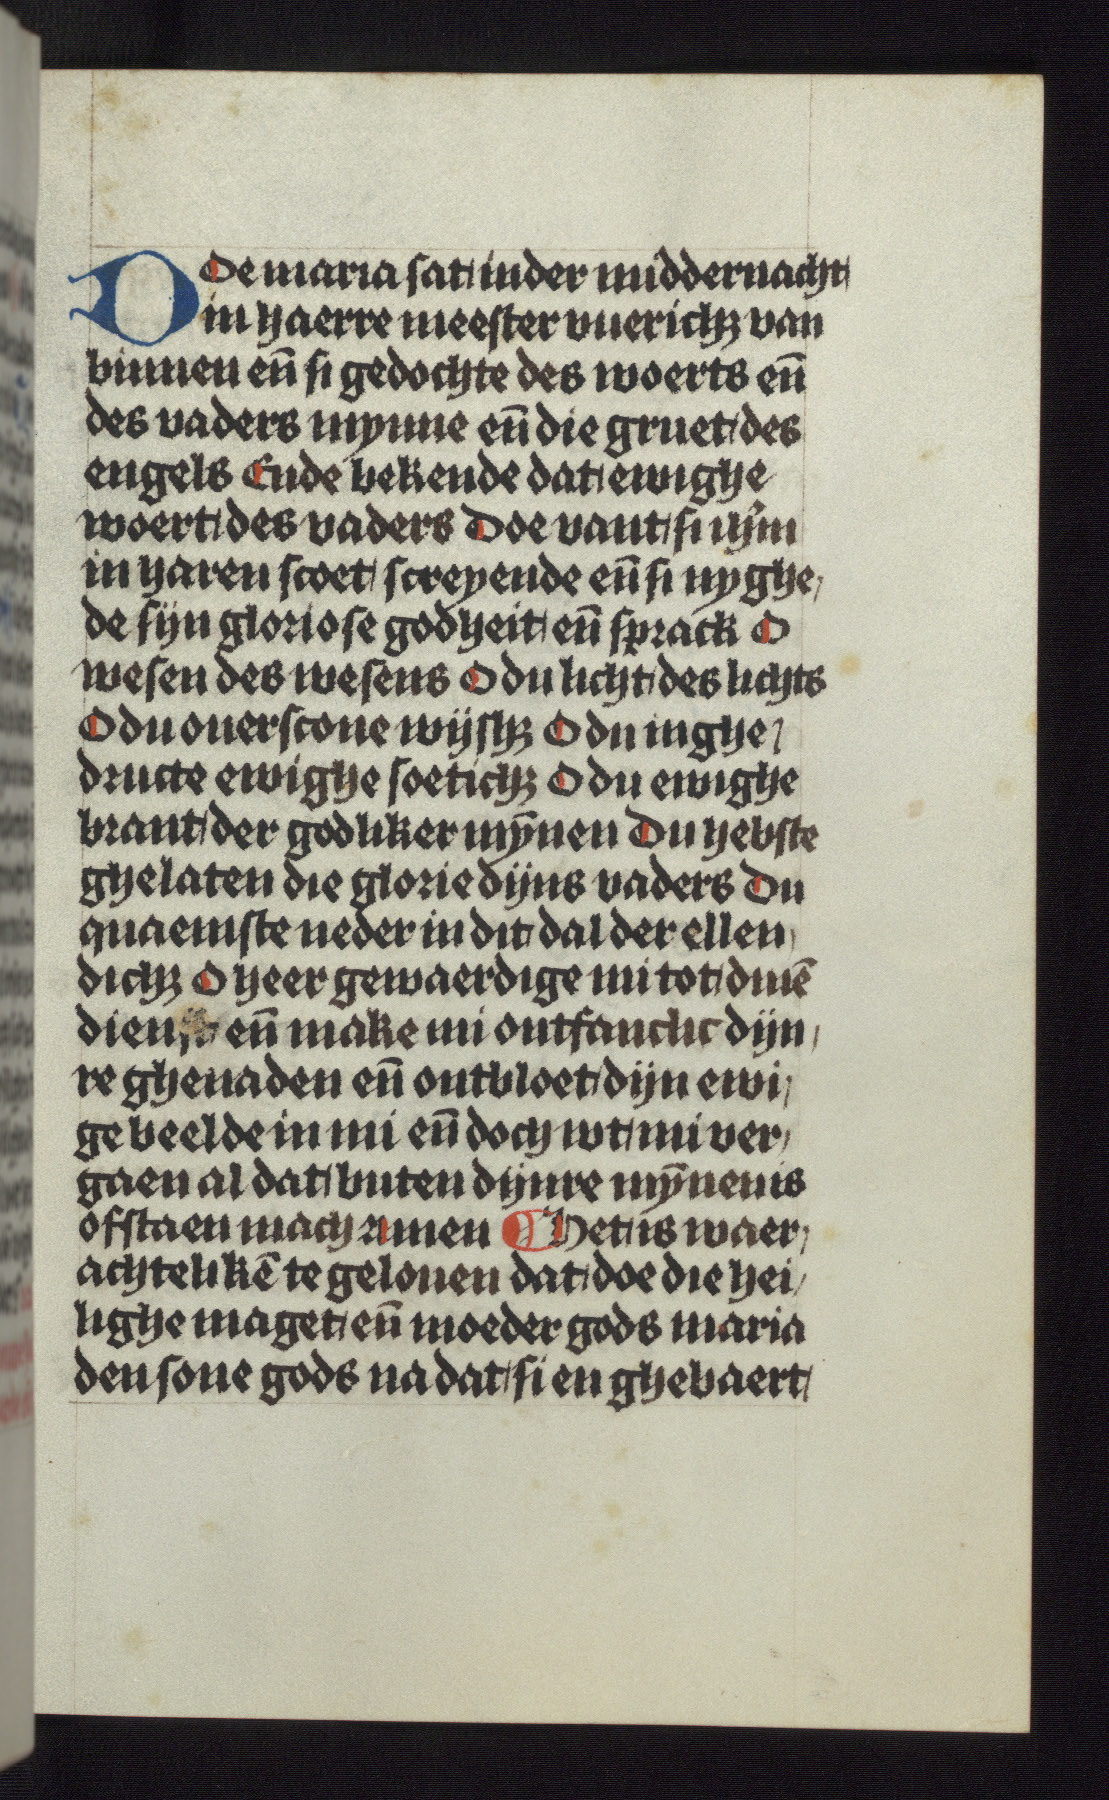 DOe maria sat in der middernacht
in haerre meester vuericheꝫ van
binnen en̄ si gedochte des woerts en̄
des vaders mynne en̄ die gruet des
engels Ende bekende dat ewighe
woert des vaders Doe vant si
in haren scoet screyende en̄ si nyghe
de sijn gloriose godheit en̄ sprack O
wesen des wesens O du licht des lichts
O du ouerscone wijshꝫ O du inghe
dructe ewighe soetichꝫ O du ewighe
brant der godliker mȳnen Du hebste
ghelaten die glorie dijns vaders Du
quaemste neder in dit dal der ellen
dichꝫ O heer gewaerdige mi tot dinē
dienst en̄ make mi ontfanclic dijn
re ghenaden en̄ ontbloet dijn ewi
ge beelde in mi en̄ doch wt mi ver
gaen al dat buten dijnre mȳnen is
of staen mach amen Het is waer
achtelikē te gelouen dat doe die hei
lighe maget en̄ moeder gods maria
den sone gods na dat si en ghebaert